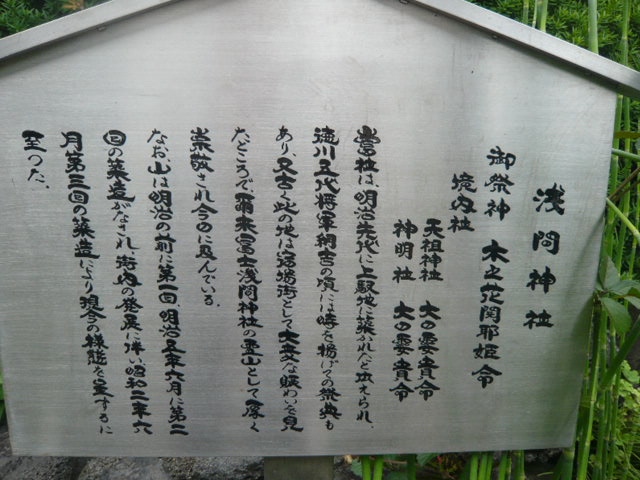 浅間神社
御祭神　木之花開耶姫命
境内社
天祖神社　大日孁貴命
神明社　大日孁貴命
當社は、明治先代に上駅地に築かれたと伝えられ、
徳川五代将軍綱吉の頃には時を掲げての祭典も
あり、又古く此の地は宿場街として大変な賑わいを見
たところで、爾来冨士浅間神社の里山として厚く
崇敬され今日に及んでいる。
なお、山は明治の前に第一回明治五年六月に第二
回の築造がなされ、街内の発展に伴い昭和二年六
月第三回の築造により現今の様態を呈するに
至つた。